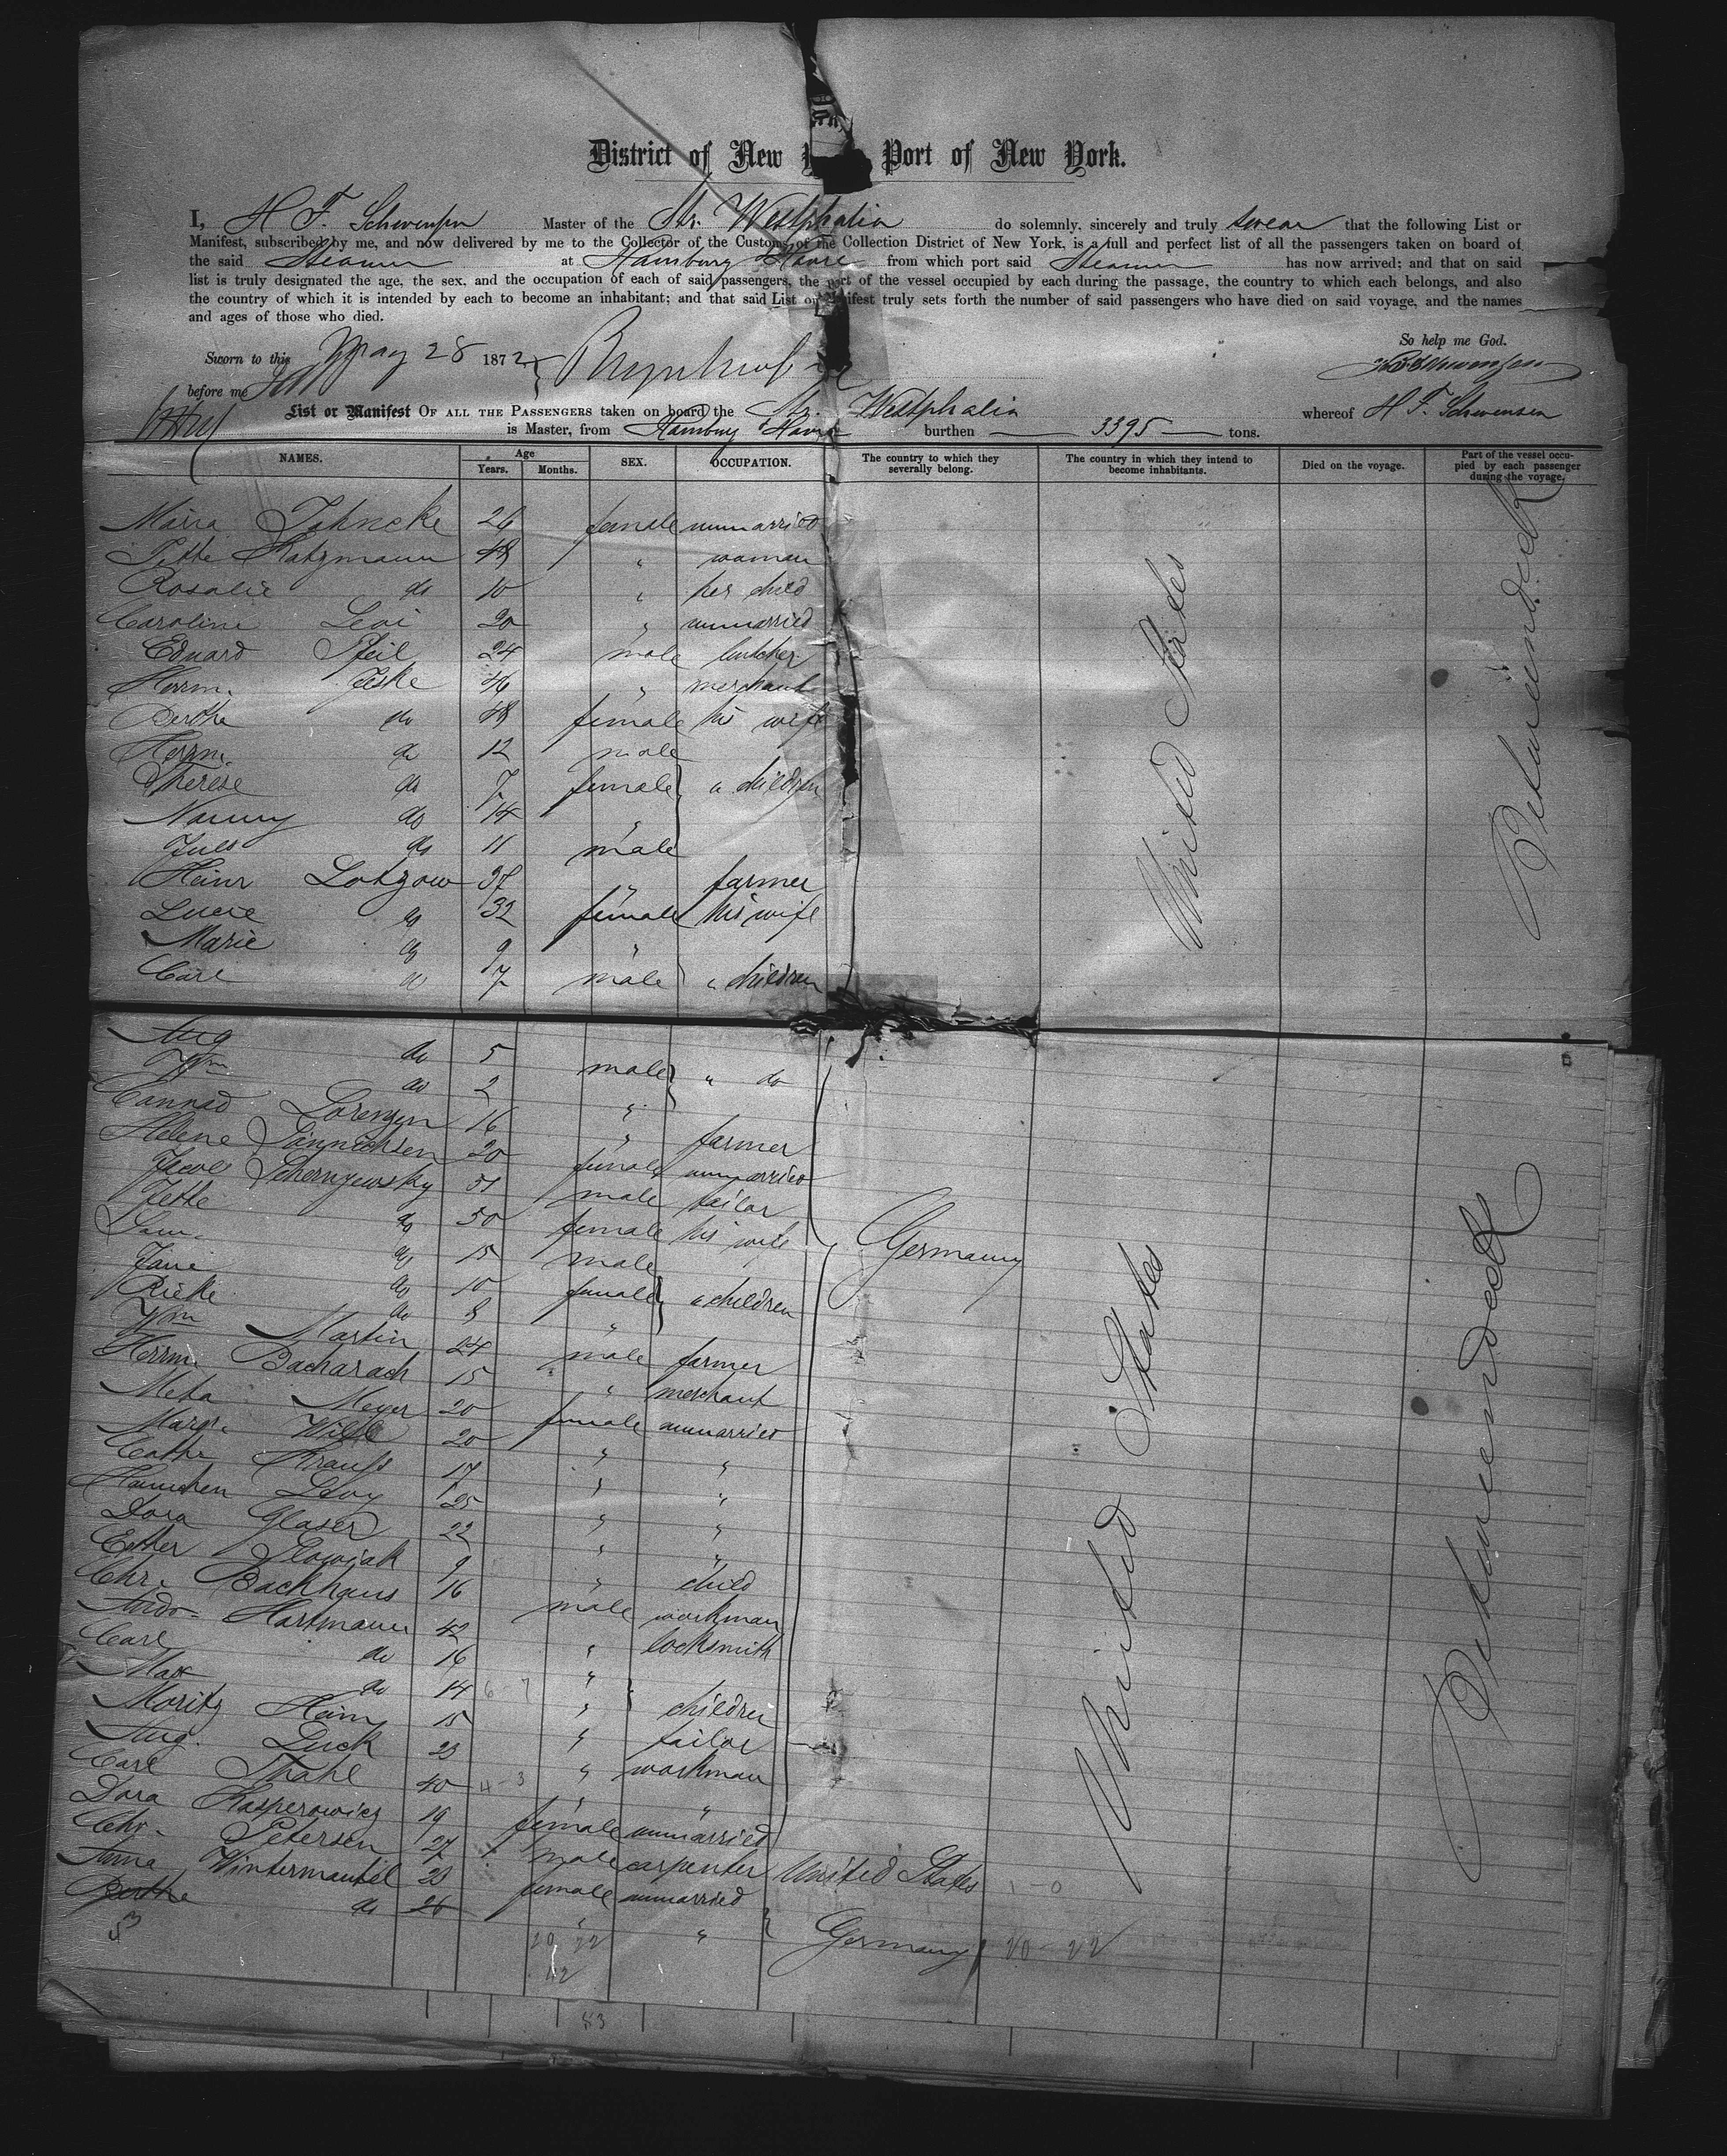 District of New Port of New York.
I, H F. Schwensen Master of the Str. Westphalia do solemnly, sincerely and truly swear that the following List or
Manifest, subscribed by me, and now delivered by me to the Collector of the Customs of the Collection District of New York, is a full and perfect list of all the passengers taken on board of
the said Steamer at Hamburg Havre from which port said Steamer has now arrived; and that on said
list is truly designated the age, the sex, and the occupation of each of said passengers, the part of the vessel occupied by each during the passage, the country to which each belongs, and also
the country of which it is intended by each to become an inhabitant; and that said List or Manifest truly sets forth the number of said passengers who have died on said voyage, and the names
and ages of those who died.
So help me God.
Sworn to this May 28 1872
before me
List or Manifest OF ALL THE PASSENGERS taken on board the Str. Westphalia whereof H F. Schwensen
is Master, from Hamburg & Havre burthen 3395 tons.
NAMES. Age Years. Months. SEX. OCCUPATION. The country to which they severally belong. The country in which they intend to become inhabitants. Died on the voyage. Part of the vessel occupied by each passenger during the voyage.
Maria Jahncke 26 female unmarried
Jette Katzmann 48 " woman
Rosalie do 10 " her child
Caroline Levi 20 " unmarried
Eduard Pfeil 24 male butcher
Herrm. Jeske 46 " merchant
Bertha do 48 female his wife
Herrm. do 12 male
Therese do 7 female " children
Nanny do 14 "
Jules do 11 male
Heinr Lotzow 37 " farmer
Lucie do 32 female his wife
Marie do 9 "
Carl do 7 male " children
United States
Between deck
Aug do 5 male " do
Wm do 2 "
Conrad Lorenzen 16 " farmer
Helene Jannichsen 20 female unmarried
Jacob Schernzewsky 51 male tailor
Jette do 50 female his wife
Sam. do 15 male
Jane do 10 female " children
Rieke do 8 "
Wm Martin 24 male farmer
Herrm. Bacharach 15 " merchant
Meta Meyer 20 female unmarried
Margr. Wilk 20 " "
Cathr Krauss 17 " "
Hannchen Levy 25 " "
Dora Glaser 22 " "
Esther Slowjak 9 " child
Chr. Backhaus 16 male workman
Andr. Hartmann 42 " locksmith
Carl do 16 "
Max do 14 " children
Moritz Heim 15 " tailor
Aug. Duck 23 " workman
Carl Thahl 40 " "
Dora Kasperowicz 19 female unmarried
Germany
Chr. Petersen 27 male carpenter United States
Anna Wintermantel 23 female unmarried
Berthe do 26 " " Germany
United States
Between deck
6-7
4-3
1-0
20 22
20-22
42
83